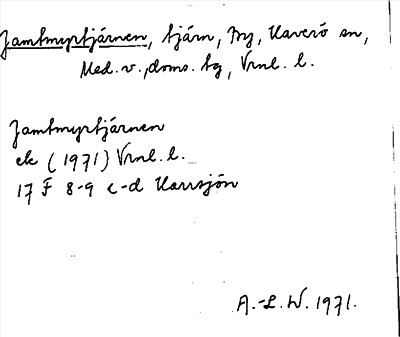 Jamtmyrtjärnen, tjärn, By, Haverö sn,
Med. v. doms. tg, Vrnl. l.
Jamtmyrtjärnen
ek (1971) Vrnl. l.
17 F 8-9 c-d Harrsjön
A.-L. W. 1971.